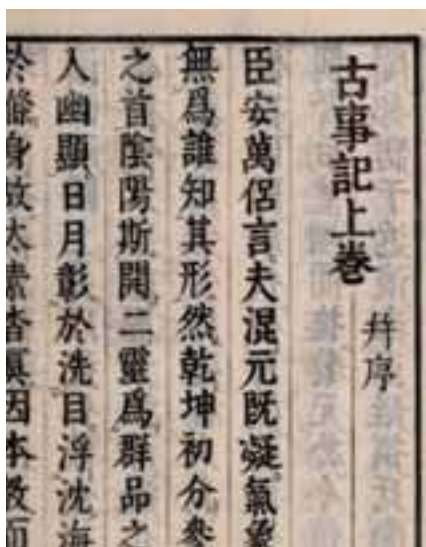 古事記上巻 幷序
臣安萬侶言夫混元既凝氣象
無爲誰知其形然乾坤初分參
之首陰陽斯開二靈爲群品之
入幽顯日月彰於洗目浮沈海
於滌身故太素杳冥因本敎而